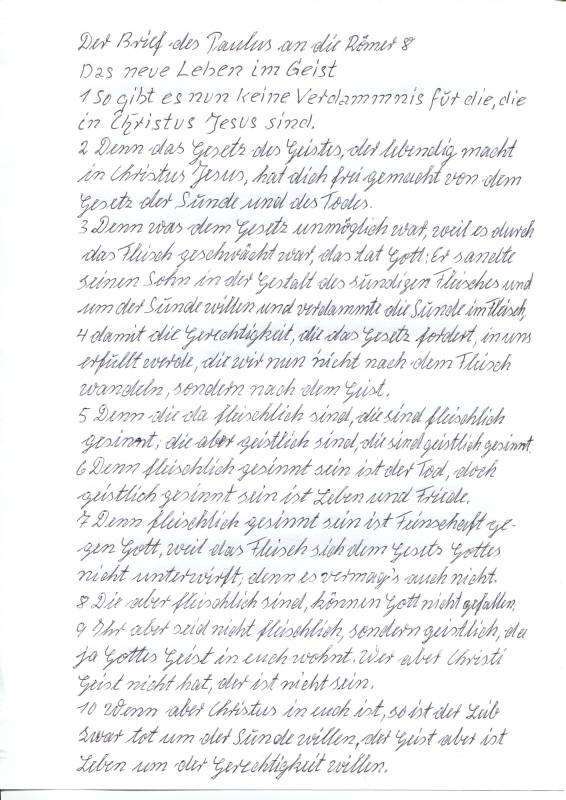 Der Brief des Paulus an die Römer 8
Das neue Leben im Geist
1 So gibt es nun keine Verdammnis für die, die
in Christus Jesus sind.
2 Denn das Gesetz des Geistes, der lebendig macht
in Christus Jesus, hat dich frei gemacht von dem
Gesetz der Sünde und des Todes.
3 Denn was dem Gesetz unmöglich war, weil es durch
das Fleisch geschwächt war, das tat Gott: Er sandte
seinen Sohn in der Gestalt des sündigen Fleisches und
um der Sünde willen und verdammte die Sünde im Fleisch,
4 damit die Gerechtigkeit, die das Gesetz fordert, in uns
erfüllt werde, die wir nun nicht nach dem Fleisch
wandeln, sondern nach dem Geist.
5 Denn die da fleischlich sind, die sind fleischlich
gesinnt; die aber geistlich sind, die sind geistlich gesinnt.
6 Denn fleischlich gesinnt sein ist der Tod, doch
geistlich gesinnt sein ist Leben und Friede.
7 Denn fleischlich gesinnt sein ist Feinschaft ge-
gen Gott, weil das Fleisch sich dem Gesetz Gottes
nicht unterwirft; denn es vermag's auch nicht.
8 Die aber fleischlich sind, können Gott nicht gefallen.
9 Ihr aber seid nicht fleischlich, sondern geistlich, da
ja Gottes Geist in euch wohnt. Wer aber Christi
Geist nicht hat, der ist nicht sein.
10 Wenn aber Christus in euch ist, so ist der Leib
zwar tot um der Sünde willen, der Geist aber ist
Leben um der Gerechtigkeit willen.